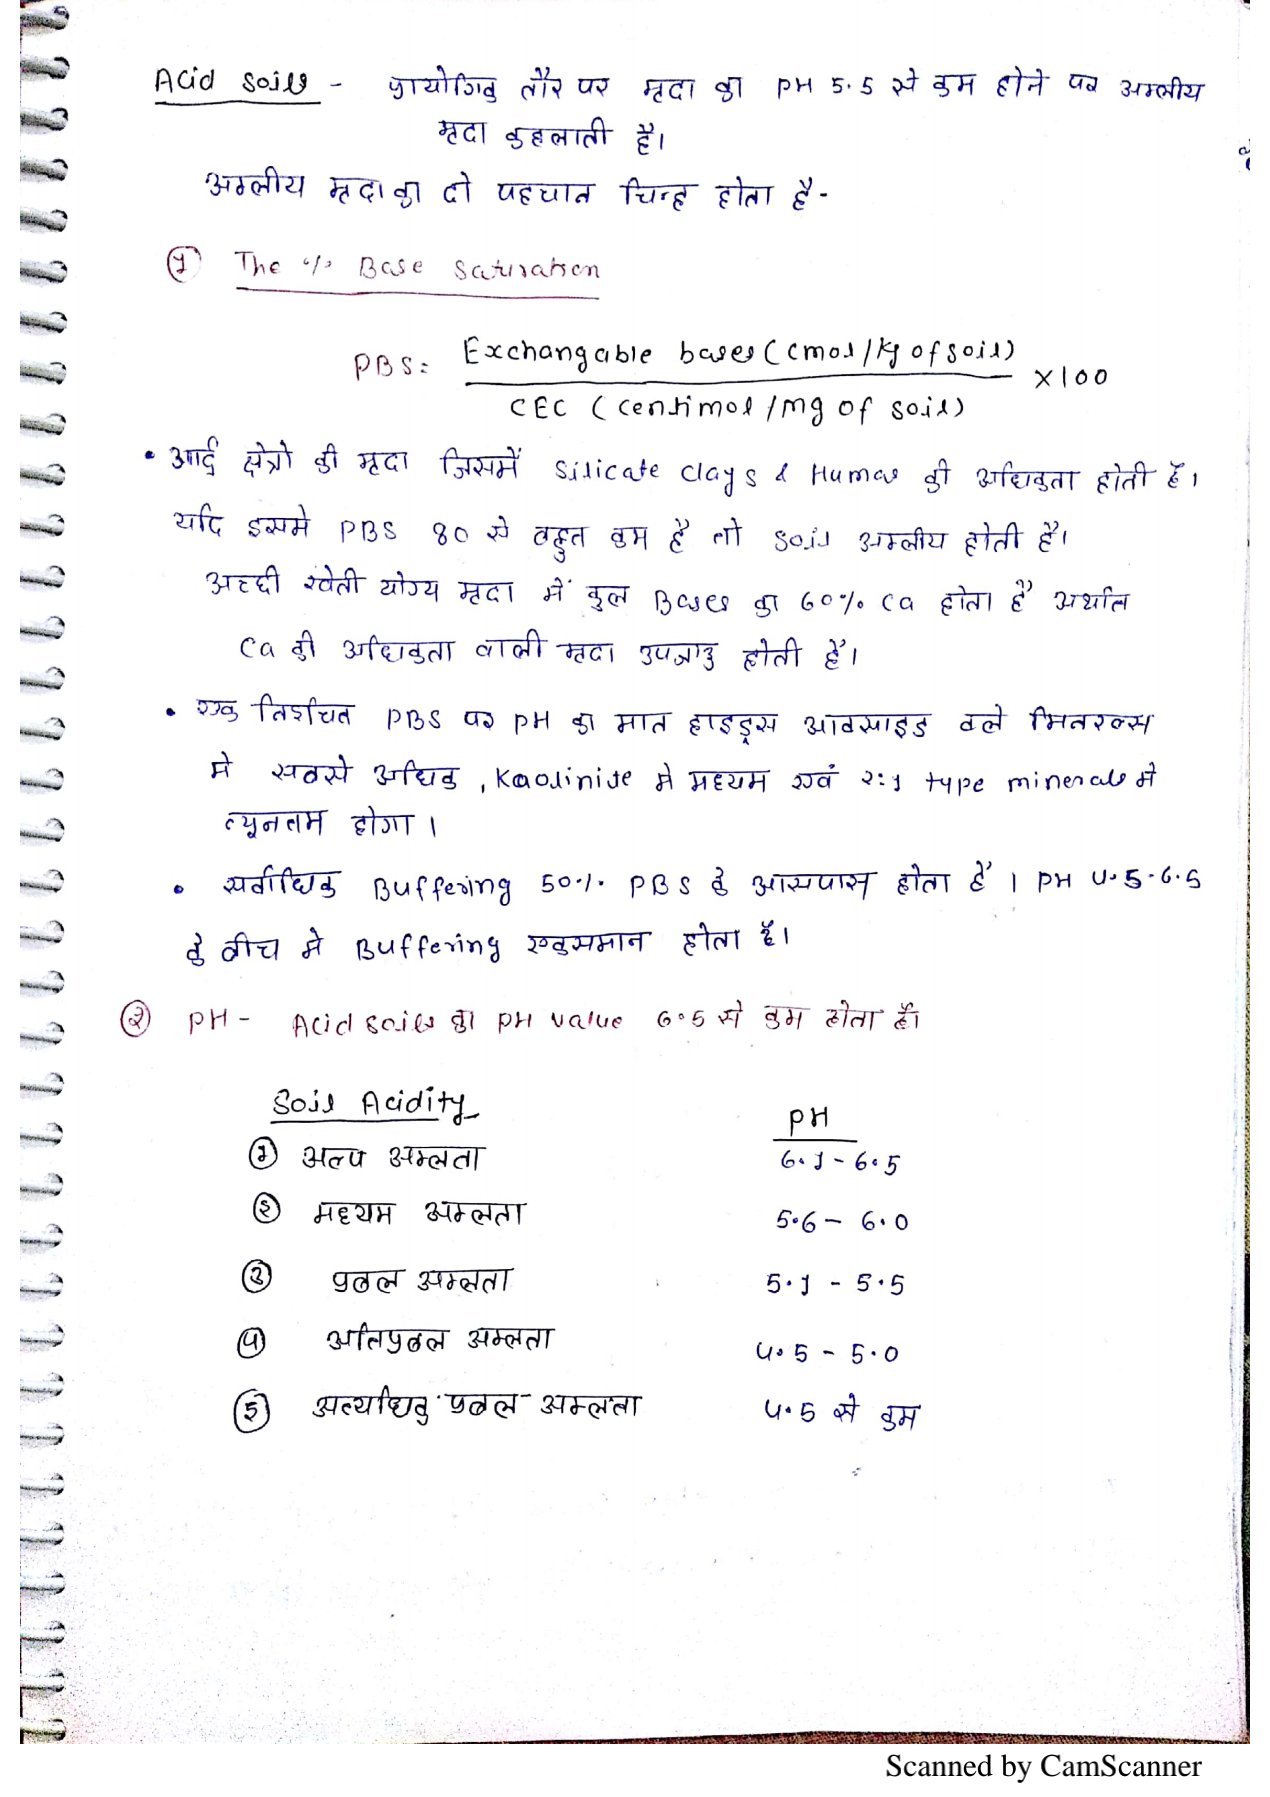 Acid soils - प्रायोगिक तौर पर मृदा का PH 5.5 से कम होने पर अम्लीय
मृदा कहलाती है।
अम्लीय मृदा का दो पहचान चिन्ह होता है -
① The % Base Saturation
PBS = Exchangable bases (cmol/kg of soil)
CEC (centimol/mg of soil)
×100
• आर्द्र क्षेत्रो की मृदा जिसमें Silicate Clays & Humas की अधिकता होती है।
यदि इसमे PBS 80 से बहुत कम है तो Soil अम्लीय होती है।
अच्छी खेती योग्य मृदा में कुल Bases का 60% Ca होता है अर्थात
Ca की अधिकता वाली मृदा उपजाउ होती है।
• एक निश्चित PBS पर PH का मान हाइड्रस आक्साइड वाले मिनरल्स
मे सबसे अधिक, Kaolinite मे मध्यम एवं २:१ type minerals मे
न्यूनतम होगा।
• सर्वाधिक Buffering 50% PBS के आसपास होता है। PH 4.5-6.5
के बीच मे Buffering एकसमान होता है।
② PH - Acid soils का PH value 6.5 से कम होता है।
Soil Acidity PH
① अल्प अम्लता 6.1 - 6.5
② मध्यम अम्लता 5.6 - 6.0
③ प्रबल अम्लता 5.1 - 5.5
④ अतिप्रबल अम्लता 4.5 - 5.0
⑤ अत्यधिक प्रबल अम्लता 4.5 से कम
Scanned by CamScanner